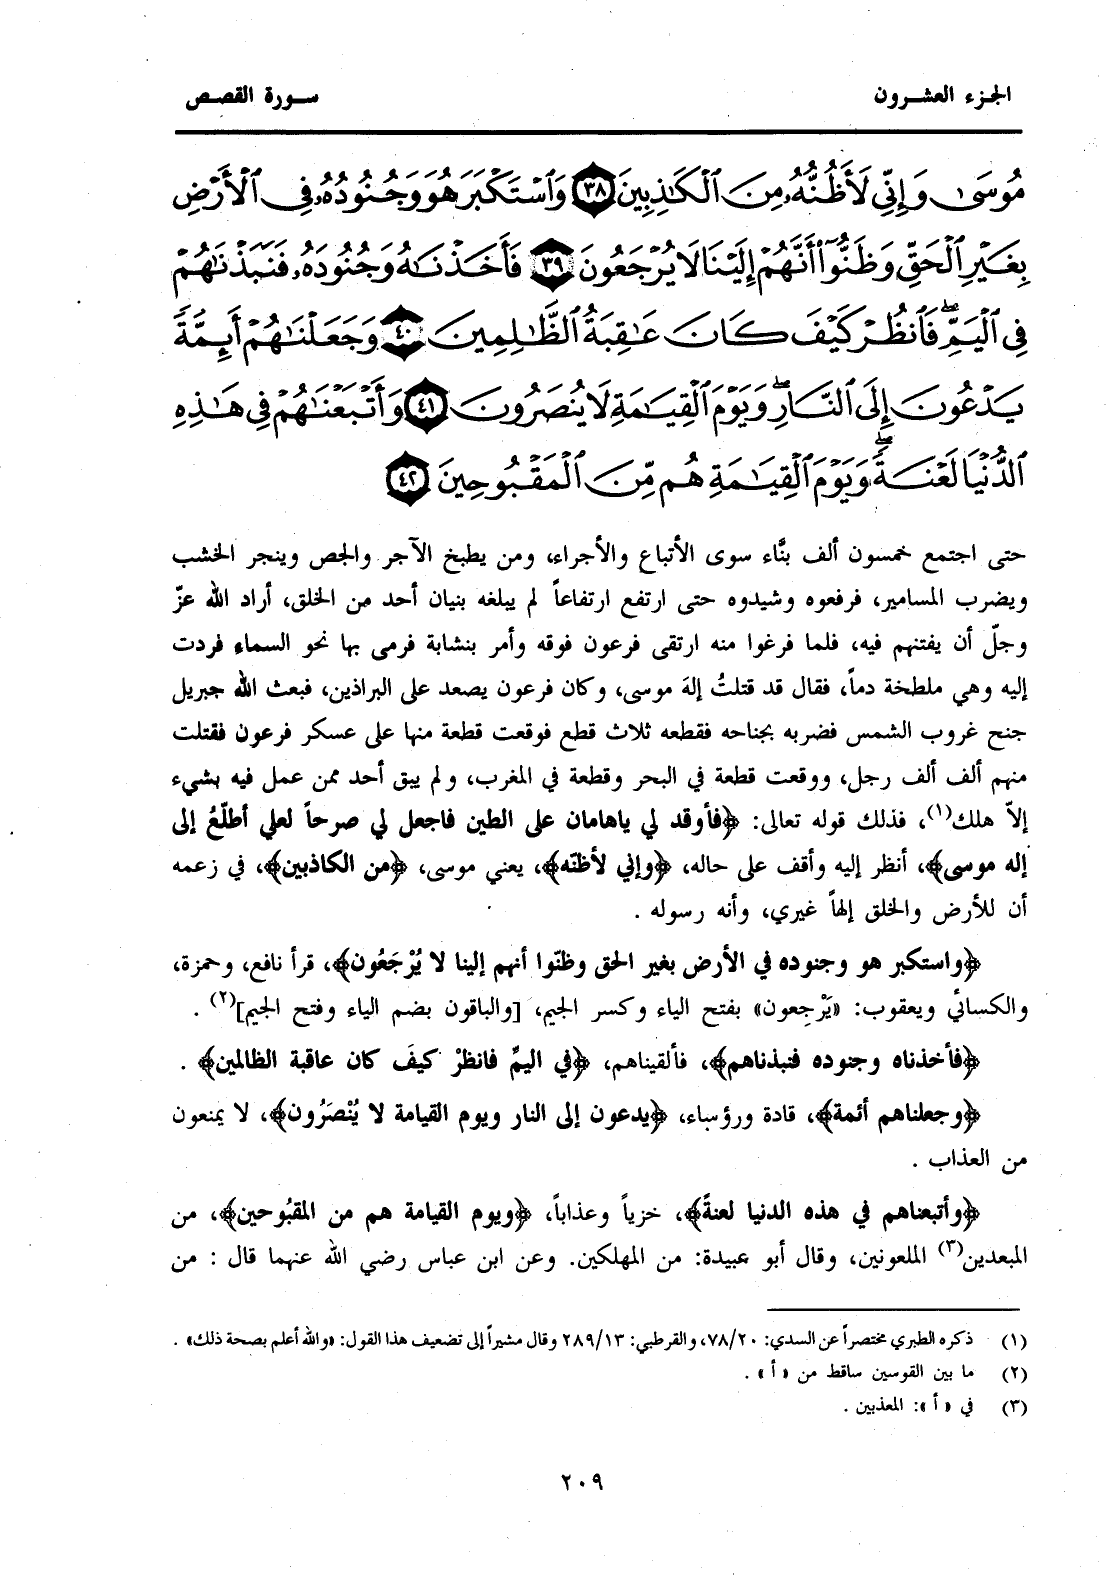 الجزء العشرون
سورة القصص
مُوسَىٰ وَإِنِّي لَأَظُنُّهُۥ مِنَ ٱلْكَٰذِبِينَ ٣٨ وَٱسْتَكْبَرَ هُوَ وَجُنُودُهُۥ فِى ٱلْأَرْضِ
بِغَيْرِ ٱلْحَقِّ وَظَنُّوٓا۟ أَنَّهُمْ إِلَيْنَا لَا يُرْجَعُونَ ٣٩ فَأَخَذْنَٰهُ وَجُنُودَهُۥ فَنَبَذْنَٰهُمْ
فِى ٱلْيَمِّ ۖ فَٱنظُرْ كَيْفَ كَانَ عَٰقِبَةُ ٱلظَّٰلِمِينَ ٤٠ وَجَعَلْنَٰهُمْ أَئِمَّةً
يَدْعُونَ إِلَى ٱلنَّارِ ۖ وَيَوْمَ ٱلْقِيَٰمَةِ لَا يُنصَرُونَ ٤١ وَأَتْبَعْنَٰهُمْ فِى هَٰذِهِ
ٱلدُّنْيَا لَعْنَةً ۖ وَيَوْمَ ٱلْقِيَٰمَةِ هُم مِّنَ ٱلْمَقْبُوحِينَ ٤٢
حتى اجتمع خمسون ألف بنَّاء سوى الأتباع والأجراء، ومن يطبخ الآجر والجص وينجر الخشب
ويضرب المسامير، فرفعوه وشيدوه حتى ارتفع ارتفاعاً لم يبلغه بنيان أحد من الخلق، أراد الله عزّ
وجلّ أن يفتنهم فيه، فلما فرغوا منه ارتقى فرعون فوقه وأمر بنشابة فرمى بها نحو السماء فردت
إليه وهي ملطخة دماً، فقال قد قتلتُ إلهَ موسى، وكان فرعون يصعد على البراذين، فبعث الله جبريل
جنح غروب الشمس فضربه بجناحه فقطعه ثلاث قطع فوقعت قطعة منها على عسكر فرعون فقتلت
منهم ألف ألف رجل، ووقعت قطعة في البحر وقطعة في المغرب، ولم يبق أحد ممن عمل فيه بشيء
إلاّ هلك(١)، فذلك قوله تعالى: ﴿فأوقد لي ياهامان على الطين فاجعل لي صرحاً لعلي أطلّعُ إلى
إله موسى﴾، أنظر إليه وأقف على حاله، ﴿وإني لأظنّه﴾، يعني موسى، ﴿من الكاذبين﴾، في زعمه
أن للأرض والخلق إلهاً غيري، وأنه رسوله .
﴿واستكبر هو وجنوده في الأرض بغير الحق وظنّوا أنهم إلينا لا يُرْجَعُون﴾، قرأ نافع، وحمزة،
والكسائي ويعقوب: «يَرْجِعون» بفتح الياء وكسر الجيم، [والباقون بضم الياء وفتح الجيم](٢) .
﴿فأخذناه وجنوده فنبذناهم﴾، فألقيناهم، ﴿في اليمِّ فانظرْ كيفَ كان عاقبة الظالمين﴾ .
﴿وجعلناهم أئمة﴾، قادة ورؤساء، ﴿يدعون إلى النار ويوم القيامة لا يُنْصَرُون﴾، لا يمنعون
من العذاب .
﴿وأتبعناهم في هذه الدنيا لعنةً﴾، خزياً وعذاباً، ﴿ويوم القيامة هم من المقبُوحين﴾، من
المبعدين(٣) الملعونين، وقال أبو عبيدة: من المهلكين. وعن ابن عباس رضي الله عنهما قال : من
(١) ذكره الطبري مختصراً عن السدي: ٧٨/٢٠، والقرطبي: ٢٨٩/١٣ وقال مشيراً إلى تضعيف هذا القول: «والله أعلم بصحة ذلك» .
(٢) ما بين القوسين ساقط من « أ » .
(٣) في « أ »: المعذبين .
٢٠٩